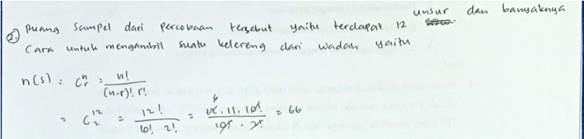 2) Ruang Sampel dari Percobaan tersebut yaitu terdapat 12 unsur dan banyaknya
Cara untuk mengambil suatu kelereng dari wadah yaitu
n(s) : C_r^n = n! / (n-r)! r!
= C_2^12 = 12! / 10! . 2! = 12 . 11 . 10! / 10! . 2! = 66